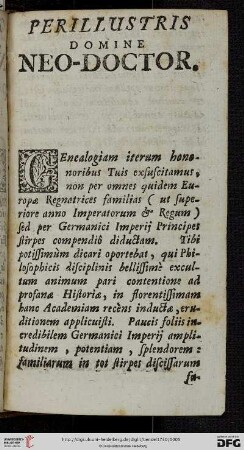 PERILLUSTRIS
DOMINE
NEO-DOCTOR.
GEnealogiam iterum hono-
noribus Tuis exsuscitamus,
non per omnes quidem Eu-
ropæ Regnatrices familias (ut supe-
riore anno Imperatorum & Regum)
sed per Germanici Imperij Principes
stirpes compendiò diductam. Tibi
potissimùm dicari oportebat, qui Phi-
losophicis disciplinis bellissimè excul-
tum animum pari contentione ad
profanæ Historiæ, in florentissimam
hanc Academiam recèns inductæ, eru-
ditionem applicuisti. Paucis foliis in-
credibilem Germanici Imperij ampli-
tudinem, potentiam, splendorem:
familiarum in tot stirpes discissarum
UNIVERSITÄTS-
BIBLIOTHEK
HEIDELBERG
Gefördert durch die
DFG